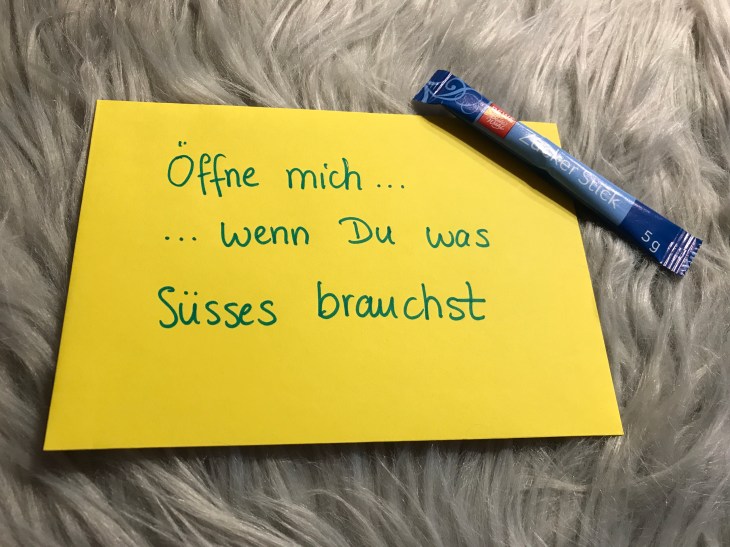 Öffne mich ...
... wenn Du was
Süsses brauchst
Zucker Stick
5g